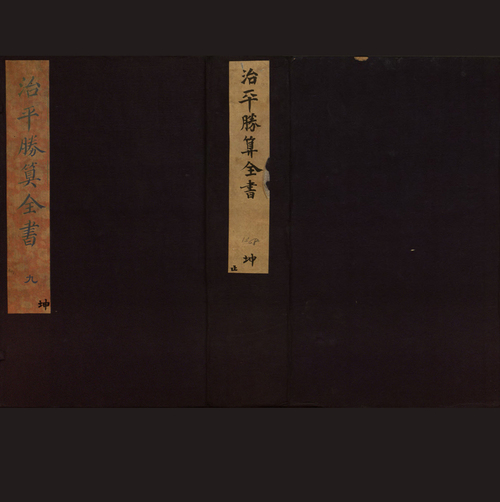 治平勝算全書
九
坤
治平勝算全書
坤
止